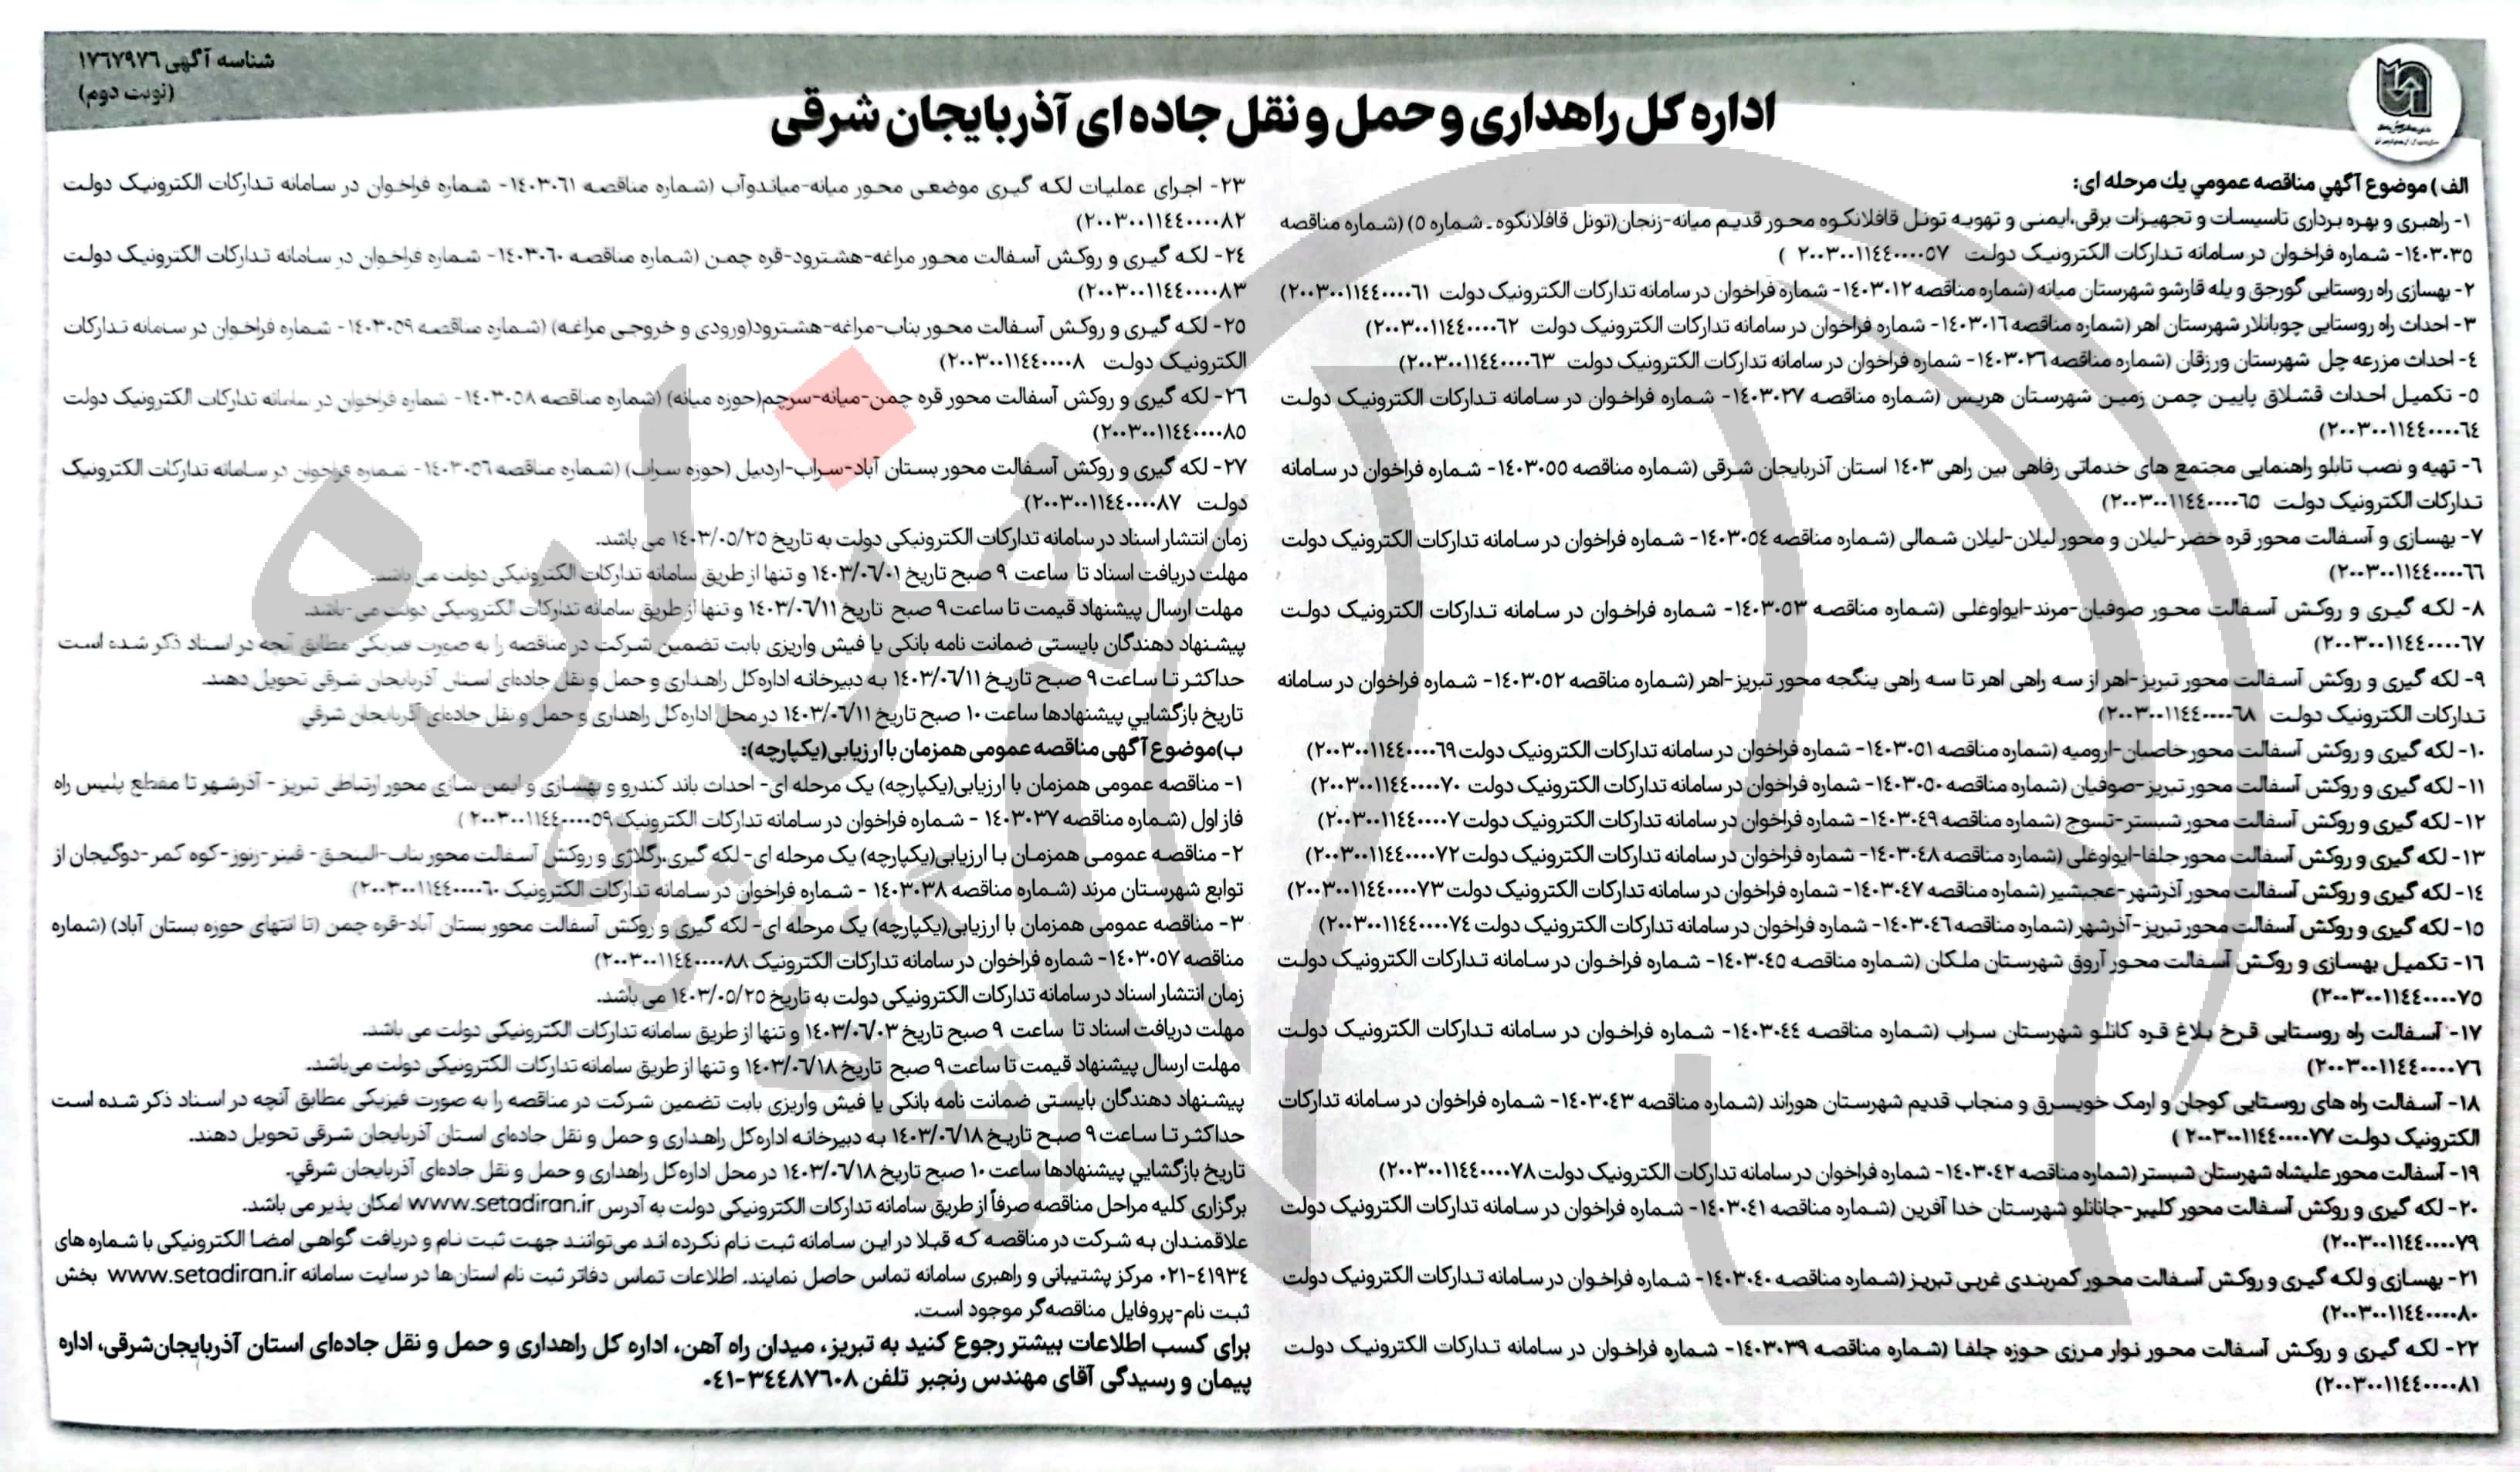 شناسه آگهی ۱۷٦۷۹۷٦
(نوبت دوم)
اداره کل راهداری و حمل و نقل جاده ای آذربایجان شرقی
الف) موضوع آگهي مناقصه عمومي يك مرحله ای:
۱- راهبری و بهره برداری تاسیسات و تجهیزات برقی،ایمنی و تهویه تونل قافلانکوه محور قدیم میانه-زنجان(تونل قافلانکوه ـ شماره ٥) (شماره مناقصه
۱٤۰۳۰۳٥- شماره فراخوان در سامانه تدارکات الکترونیک دولت ۲۰۰۳۰۰۱۱٤٤۰۰۰۰٥۷ )
۲- بهسازی راه روستایی گورجق و یله قارشو شهرستان میانه (شماره مناقصه ۱٤۰۳۰۱۲- شماره فراخوان در سامانه تدارکات الکترونیک دولت ۲۰۰۳۰۰۱۱٤٤۰۰۰۰٦۱)
۳- احداث راه روستایی چوبانلار شهرستان اهر (شماره مناقصه ۱٤۰۳۰۱٦- شماره فراخوان در سامانه تدارکات الکترونیک دولت ۲۰۰۳۰۰۱۱٤٤۰۰۰۰٦۲)
٤- احداث مزرعه چل شهرستان ورزقان (شماره مناقصه ۱٤۰۳۰۲٦- شماره فراخوان در سامانه تدارکات الکترونیک دولت ۲۰۰۳۰۰۱۱٤٤۰۰۰۰٦۳)
٥- تکمیل احداث قشلاق پایین چمن زمین شهرستان هریس (شماره مناقصه ۱٤۰۳۰۲۷- شماره فراخوان در سامانه تدارکات الکترونیک دولت
۲۰۰۳۰۰۱۱٤٤۰۰۰۰٦٤)
٦- تهیه و نصب تابلو راهنمایی مجتمع های خدماتی رفاهی بین راهی ۱٤۰۳ استان آذربایجان شرقی (شماره مناقصه ۱٤۰۳۰٥٥- شماره فراخوان در سامانه
تدارکات الکترونیک دولت ۲۰۰۳۰۰۱۱٤٤۰۰۰۰٦٥)
۷- بهسازی و آسفالت محور قره خضر-لیلان و محور لیلان-لیلان شمالی (شماره مناقصه ۱٤۰۳۰٥٤- شماره فراخوان در سامانه تدارکات الکترونیک دولت
۲۰۰۳۰۰۱۱٤٤۰۰۰۰٦٦)
۸- لکه گیری و روکش آسفالت محور صوفیان-مرند-ایواوغلی (شماره مناقصه ۱٤۰۳۰٥۳- شماره فراخوان در سامانه تدارکات الکترونیک دولت
۲۰۰۳۰۰۱۱٤٤۰۰۰۰٦۷)
۹- لکه گیری و روکش آسفالت محور تبریز-اهر از سه راهی اهر تا سه راهی ینگجه محور تبریز-اهر (شماره مناقصه ۱٤۰۳۰٥۲- شماره فراخوان در سامانه
تدارکات الکترونیک دولت ۲۰۰۳۰۰۱۱٤٤۰۰۰۰٦۸)
۱۰- لکه گیری و روکش آسفالت محور خاصبان-ارومیه (شماره مناقصه ۱٤۰۳۰٥۱- شماره فراخوان در سامانه تدارکات الکترونیک دولت ۲۰۰۳۰۰۱۱٤٤۰۰۰۰٦۹)
۱۱- لکه گیری و روکش آسفالت محور تبریز-صوفیان (شماره مناقصه ۱٤۰۳۰٥۰- شماره فراخوان در سامانه تدارکات الکترونیک دولت ۲۰۰۳۰۰۱۱٤٤۰۰۰۰۷۰)
۱۲- لکه گیری و روکش آسفالت محور شبستر-تسوج (شماره مناقصه ۱٤۰۳۰٤۹- شماره فراخوان در سامانه تدارکات الکترونیک دولت ۲۰۰۳۰۰۱۱٤٤۰۰۰۰۷)
۱۳- لکه گیری و روکش آسفالت محور جلفا-ایواوغلی (شماره مناقصه ۱٤۰۳۰٤۸- شماره فراخوان در سامانه تدارکات الکترونیک دولت ۲۰۰۳۰۰۱۱٤٤۰۰۰۰۷۲)
۱٤- لکه گیری و روکش آسفالت محور آذرشهر-عجبشیر (شماره مناقصه ۱٤۰۳۰٤۷- شماره فراخوان در سامانه تدارکات الکترونیک دولت ۲۰۰۳۰۰۱۱٤٤۰۰۰۰۷۳)
۱٥- لکه گیری و روکش آسفالت محور تبریز-آذرشهر (شماره مناقصه ۱٤۰۳۰٤٦- شماره فراخوان در سامانه تدارکات الکترونیک دولت ۲۰۰۳۰۰۱۱٤٤۰۰۰۰۷٤)
۱٦- تکمیل بهسازی و روکش آسفالت محور آروق شهرستان ملکان (شماره مناقصه ۱٤۰۳۰٤٥- شماره فراخوان در سامانه تدارکات الکترونیک دولت
۲۰۰۳۰۰۱۱٤٤۰۰۰۰۷٥)
۱۷- آسفالت راه روستایی قرخ بلاغ قره کانلو شهرستان سراب (شماره مناقصه ۱٤۰۳۰٤٤- شماره فراخوان در سامانه تدارکات الکترونیک دولت
۲۰۰۳۰۰۱۱٤٤۰۰۰۰۷٦)
۱۸- آسفالت راه های روستایی کوجان و ارمک خویسرق و منجاب قدیم شهرستان هوراند (شماره مناقصه ۱٤۰۳۰٤۳- شماره فراخوان در سامانه تدارکات
الکترونیک دولت ۲۰۰۳۰۰۱۱٤٤۰۰۰۰۷۷ )
۱۹- آسفالت محور علیشاه شهرستان شبستر (شماره مناقصه ۱٤۰۳۰٤۲- شماره فراخوان در سامانه تدارکات الکترونیک دولت ۲۰۰۳۰۰۱۱٤٤۰۰۰۰۷۸)
۲۰- لکه گیری و روکش آسفالت محور کلیبر-جانانلو شهرستان خدا آفرین (شماره مناقصه ۱٤۰۳۰٤۱- شماره فراخوان در سامانه تدارکات الکترونیک دولت
۲۰۰۳۰۰۱۱٤٤۰۰۰۰۷۹)
۲۱- بهسازی و لکه گیری و روکش آسفالت محور کمربندی غربی تبریز (شماره مناقصه ۱٤۰۳۰٤۰- شماره فراخوان در سامانه تدارکات الکترونیک دولت
۲۰۰۳۰۰۱۱٤٤۰۰۰۰۸۰)
۲۲- لکه گیری و روکش آسفالت محور نوار مرزی حوزه جلفا (شماره مناقصه ۱٤۰۳۰۳۹- شماره فراخوان در سامانه تدارکات الکترونیک دولت
۲۰۰۳۰۰۱۱٤٤۰۰۰۰۸۱)
۲۳- اجرای عملیات لکه گیری موضعی محور میانه-میاندوآب (شماره مناقصه ۱٤۰۳۰٦۱- شماره فراخوان در سامانه تدارکات الکترونیک دولت
۲۰۰۳۰۰۱۱٤٤۰۰۰۰۸۲)
۲٤- لکه گیری و روکش آسفالت محور مراغه-هشترود-قره چمن (شماره مناقصه ۱٤۰۳۰٦۰- شماره فراخوان در سامانه تدارکات الکترونیک دولت
۲۰۰۳۰۰۱۱٤٤۰۰۰۰۸۳)
۲٥- لکه گیری و روکش آسفالت محور بناب-مراغه-هشترود(ورودی و خروجی مراغه) (شماره مناقصه ۱٤۰۳۰٥۹- شماره فراخوان در سامانه تدارکات
الکترونیک دولت ۲۰۰۳۰۰۱۱٤٤۰۰۰۰۸)
۲٦- لکه گیری و روکش آسفالت محور قره چمن-میانه-سرچم(حوزه میانه) (شماره مناقصه ۱٤۰۳۰٥۸- شماره فراخوان در سامانه تدارکات الکترونیک دولت
۲۰۰۳۰۰۱۱٤٤۰۰۰۰۸٥)
۲۷- لکه گیری و روکش آسفالت محور بستان آباد-سراب-اردبیل (حوزه سراب) (شماره مناقصه ۱٤۰۳۰٥٦- شماره فراخوان در سامانه تدارکات الکترونیک
دولت ۲۰۰۳۰۰۱۱٤٤۰۰۰۰۸۷)
زمان انتشار اسناد در سامانه تدارکات الکترونیکی دولت به تاریخ ۱٤۰۳/۰٥/۲٥ می باشد.
مهلت دریافت اسناد تا ساعت ۹ صبح تاریخ ۱٤۰۳/۰٦/۰۱ و تنها از طریق سامانه تدارکات الکترونیکی دولت می باشد.
مهلت ارسال پیشنهاد قیمت تا ساعت ۹ صبح تاریخ ۱٤۰۳/۰٦/۱۱ و تنها از طریق سامانه تدارکات الکترونیکی دولت می-باشد.
پیشنهاد دهندگان بایستی ضمانت نامه بانکی یا فیش واریزی بابت تضمین شرکت در مناقصه را به صورت فیزیکی مطابق آنچه در اسناد ذکر شده است
حداکثر تا ساعت ۹ صبح تاریخ ۱٤۰۳/۰٦/۱۱ به دبیرخانه اداره‌کل راهداری و حمل و نقل جاده‌ای استان آذربایجان شرقی تحویل دهند.
تاریخ بازگشایي پیشنهادها ساعت ۱۰ صبح تاریخ ۱٤۰۳/۰٦/۱۱ در محل اداره‌کل راهداری و حمل و نقل جاده‌ای آذربایجان شرقي
ب)موضوع آگهی مناقصه عمومی همزمان با ارزیابی(یکپارچه):
۱- مناقصه عمومی همزمان با ارزیابی(یکپارچه) یک مرحله ای- احداث باند کندرو و بهسازی و ایمن سازی محور ارتباطی تبریز - آذرشهر تا مقطع پلیس راه
فاز اول (شماره مناقصه ۱٤۰۳۰۳۷ - شماره فراخوان در سامانه تدارکات الکترونیک ۲۰۰۳۰۰۱۱٤٤۰۰۰۰٥۹ )
۲- مناقصه عمومی همزمان با ارزیابی(یکپارچه) یک مرحله ای- لکه گیری،رگلاژی و روکش آسفالت محور بناب-البنحق- قینر-زنوز-کوه کمر-دوگیجان از
توابع شهرستان مرند (شماره مناقصه ۱٤۰۳۰۳۸ - شماره فراخوان در سامانه تدارکات الکترونیک ۲۰۰۳۰۰۱۱٤٤۰۰۰۰٦۰)
۳- مناقصه عمومی همزمان با ارزیابی(یکپارچه) یک مرحله ای- لکه گیری و روکش آسفالت محور بستان آباد-قره چمن (تا انتهای حوزه بستان آباد) (شماره
مناقصه ۱٤۰۳۰٥۷- شماره فراخوان در سامانه تدارکات الکترونیک ۲۰۰۳۰۰۱۱٤٤۰۰۰۰۸۸)
زمان انتشار اسناد در سامانه تدارکات الکترونیکی دولت به تاریخ ۱٤۰۳/۰٥/۲٥ می باشد.
مهلت دریافت اسناد تا ساعت ۹ صبح تاریخ ۱٤۰۳/۰٦/۰۳ و تنها از طریق سامانه تدارکات الکترونیکی دولت می باشد.
مهلت ارسال پیشنهاد قیمت تا ساعت ۹ صبح تاریخ ۱٤۰۳/۰٦/۱۸ و تنها از طریق سامانه تدارکات الکترونیکی دولت می‌باشد.
پیشنهاد دهندگان بایستی ضمانت نامه بانکی یا فیش واریزی بابت تضمین شرکت در مناقصه را به صورت فیزیکی مطابق آنچه در اسناد ذکر شده است
حداکثر تا ساعت ۹ صبح تاریخ ۱٤۰۳/۰٦/۱۸ به دبیرخانه اداره‌کل راهداری و حمل و نقل جاده‌ای استان آذربایجان شرقی تحویل دهند.
تاریخ بازگشایي پیشنهادها ساعت ۱۰ صبح تاریخ ۱٤۰۳/۰٦/۱۸ در محل اداره‌کل راهداری و حمل و نقل جاده‌ای آذربایجان شرقي.
برگزاری کلیه مراحل مناقصه صرفاً از طریق سامانه تدارکات الکترونیکی دولت به آدرس www.setadiran.ir امکان پذیر می باشد.
علاقمندان به شرکت در مناقصه که قبلا در این سامانه ثبت نام نکرده اند می‌توانند جهت ثبت نام و دریافت گواهی امضا الکترونیکی با شماره های
۰۲۱-٤۱۹۳٤ مرکز پشتیبانی و راهبری سامانه تماس حاصل نمایند. اطلاعات تماس دفاتر ثبت نام استان‌ها در سایت سامانه www.setadiran.ir بخش
ثبت نام-پروفایل مناقصه‌گر موجود است.
برای کسب اطلاعات بیشتر رجوع کنید به تبریز، میدان راه آهن، اداره کل راهداری و حمل و نقل جاده‌ای استان آذربایجان‌شرقی، اداره
پیمان و رسیدگی آقای مهندس رنجبر تلفن ۰٤۱-۳٤٤۸۷٦۰۸